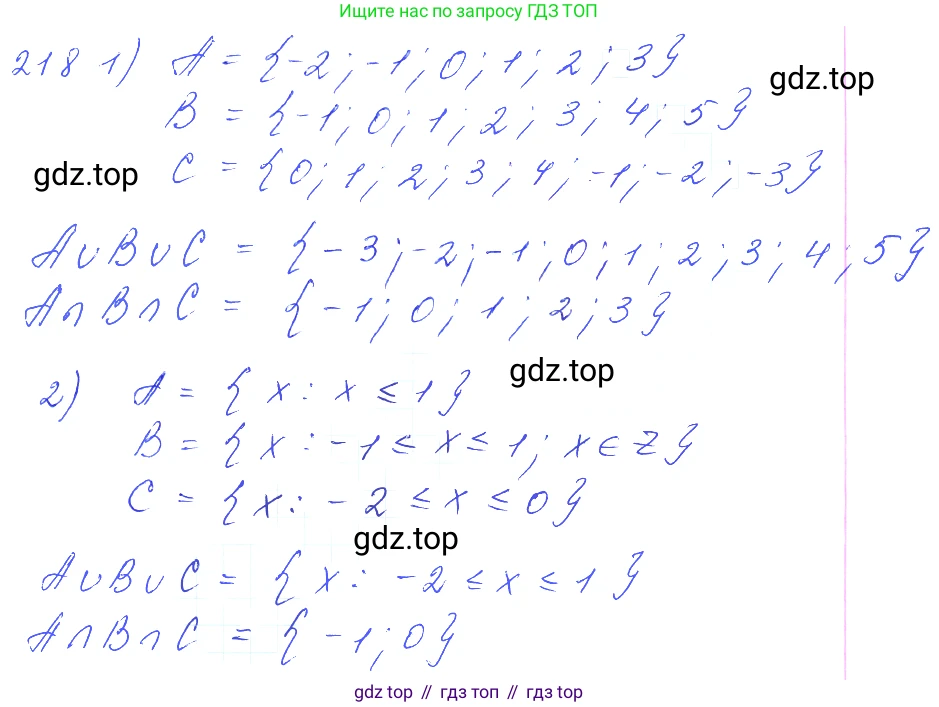 Ищите нас по запросу ГДЗ ТОП
218 1) A = {-2; -1; 0; 1; 2; 3}
gdz.top
B = {-1; 0; 1; 2; 3; 4; 5}
gdz.top
C = {0; 1; 2; 3; 4; -1; -2; -3}
A∪B∪C = {-3; -2; -1; 0; 1; 2; 3; 4; 5}
A∩B∩C = {-1; 0; 1; 2; 3}
gdz.top
2) A = {x: x ≤ 1}
B = {x: -1 ≤ x ≤ 1; x ∈ Z}
C = {x: -2 ≤ x ≤ 0}
gdz.top
A∪B∪C = {x: -2 ≤ x ≤ 1}
A∩B∩C = {-1; 0}
gdz top // гдз топ // gdz top